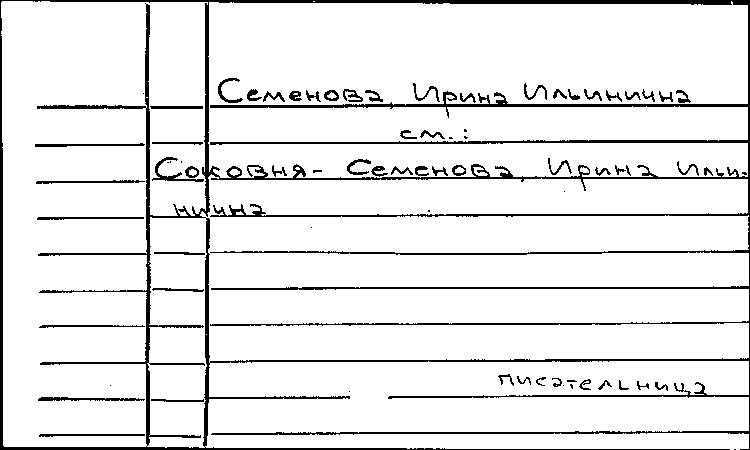 Семенова, Ирина Ильинична
см.:
Соковня-Семенова, Ирина Ильи-
нична
писательница